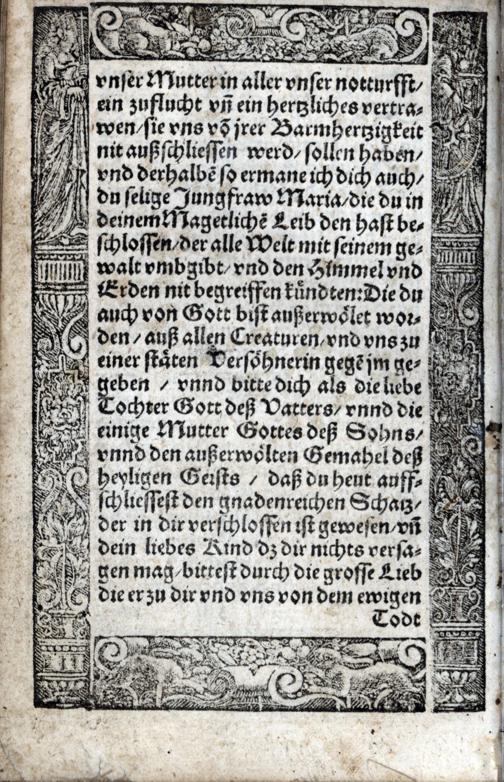 vnser Mutter in aller vnser notturfft/
ein zuflucht vñ ein hertzliches vertra⸗
wen/ sie vns võ jrer Barmhertzigkeit
nit außschliessen werd/ sollen haben/
vnd derhalbẽ so ermane ich dich auch/
du selige Jungfraw Maria/ die du in
deinem Magetlichẽ Leib den hast be⸗
schlossen/ der alle Welt mit seinem ge⸗
walt vmbgibt/ vnd den Himmel vnd
Erden nit begreiffen kůndten: Die du
auch von Gott bist außerwoͤlet wor⸗
den/ auß allen Creaturen/ vnd vns zu
einer staͤten Versoͤhnerin gegẽ jm ge⸗
geben / vnnd bitte dich als die liebe
Tochter Gott deß Vatters/ vnnd die
einige Mutter Gottes deß Sohns/
vnnd den außerwoͤlten Gemahel deß
heyligen Geists / daß du heut auff⸗
schliessest den gnadenreichen Schatz/
der in dir verschlossen ist gewesen/ vñ
dein liebes Kind dz dir nichts versa⸗
gen mag/ bittest durch die grosse Lieb
die er zu dir vnd vns von dem ewigen
Todt